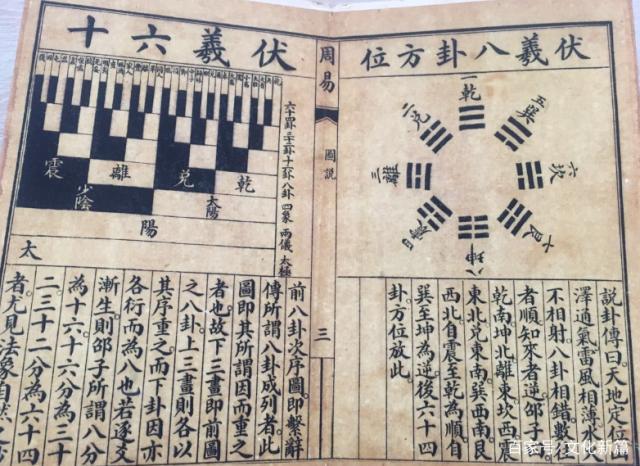 伏羲八卦方位
一乾
二兌
三離
四震
五巽
六坎
七艮
八坤
說卦傳曰天地定位
澤通氣雷風相薄水
不相射八卦相錯數
者順知來者逆邵子
乾南坤北離東坎西震
東北兌東南巽西南艮
西北自震至乾為順自
巽至坤為逆後六十四
卦方位放此
周易
圖説
三
伏羲六十
六十四卦
三十二卦
十六卦
八卦
四象
兩儀
太極
乾
兌
離
震
太陽
少陰
陽
太
前八卦次序圖即繫辭
傳所謂八卦成列者此
圖即其所謂因而重之
者也故下三畫即前圖
之八卦上三畫則各以
其序重之而下卦因亦
各衍而為八也若逐爻
漸生則邵子所謂八分
為十六十六分為三十
二三十二分為六十四
者尤見法象自然之妙
百家号/文化新篇